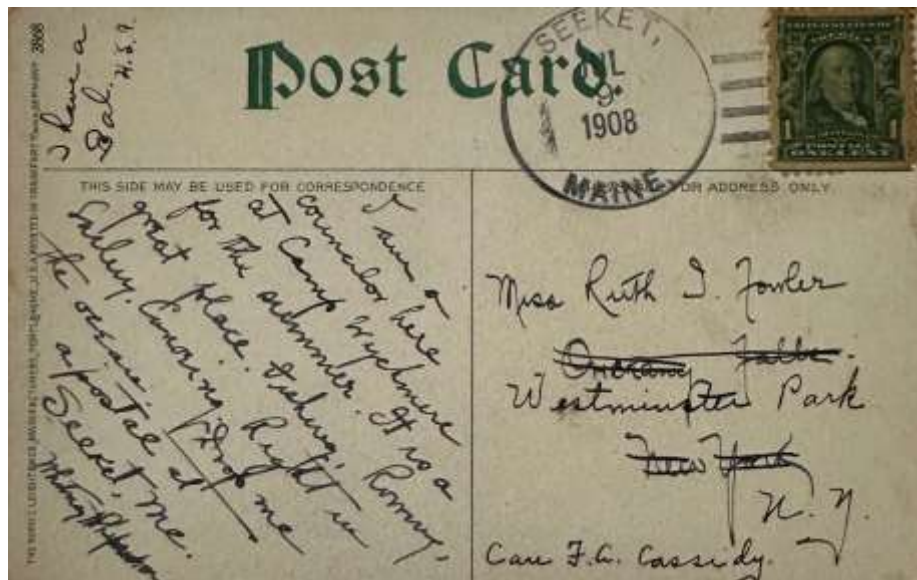 2868
I have a
Gal. H.S.?
Post Card
SEEKET,
JUL
9
1908
MAINE
POSTAGE
ONE CENT
THIS SIDE MAY BE USED FOR CORRESPONDENCE
FOR ADDRESS ONLY.
I am a
councilor here
at Camp Wychmere
for the summer. It is a
great place. Fishing, Rowing,
Sailing. Canoeing. Right in
the ocean. Drop me
a postal at
Seeket, Me.
Miss Ruth I. Fowler
Falls.
Westminster Park
New York
N. Y.
Care F.A. Cassidy.